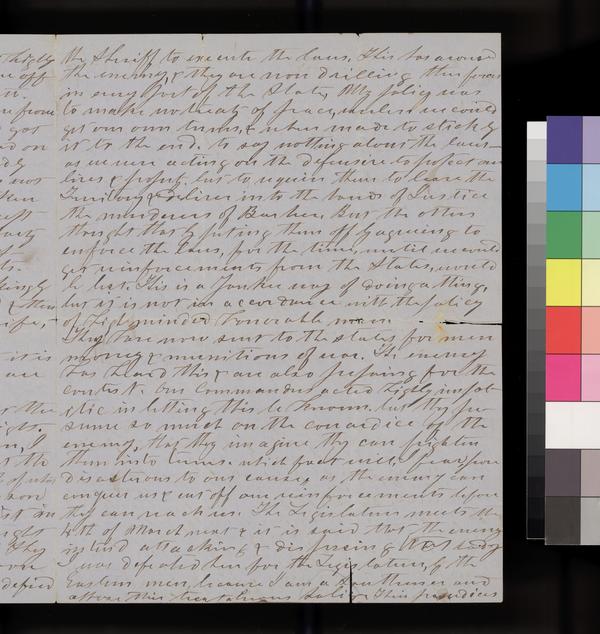 the Sheriff to execute the laws. This has aroused
the enemy, & they are now drilling their forces
in every part of the State. My policy was
to make no treaty of peace, unless we could
get our own terms, & when made to stick by
it to the end. to say nothing about the laws
as we were acting on the defensive to protect our
lives & property. but to require them to leave the
Territory & deliver into the hands of Justice
the murderers of Barber. But the others
thought that by puting them off by agreeing to
enforce the laws, for the time, until we could
get reinforcements from the States, would
be best. This is a Yankee way of doing a thing,
but it is not in accordance with the policy
of high minded honorable men.
They have now sent to the states for men
money & munitions of war. The enemy
has heard this, & are also preparing for the
contest. Our Commanders acted highly impol-
itic in letting this be known. but they pre-
sume so much on the cowardice of the
enemy, that they imagine they can frighten
them into terms. which fact will, I fear, prove
disastrous to our cause, as the enemy can
conquer us & cut off our reinforcements before
they can reach us. The Legislature meets the
4th of March next & it is said that the enemy
intend attacking & dispersing that body
I was defeated here for the Legislature, by the
Eastern men, because I am a Southerner and
oppose this treasonous policy. This prejudices